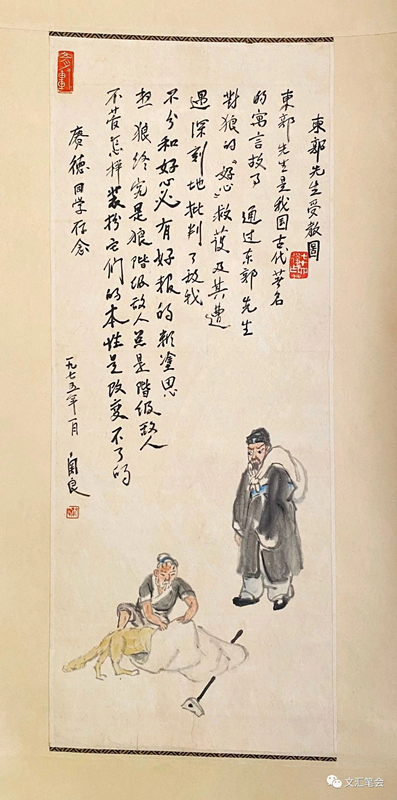 東郭先生受教圖
東郭先生是我国古代著名
的寓言故事 通过东郭先生
對狼的“好心”救護及其遭
遇深刻地批判了敌我
不分和好心必有好报的糊塗思
想 狼终究是狼階级敌人总是階级敌人
不管怎样装扮它们的本性是改变不了的
赓德同学存念
一九七五年一月
文汇笔会